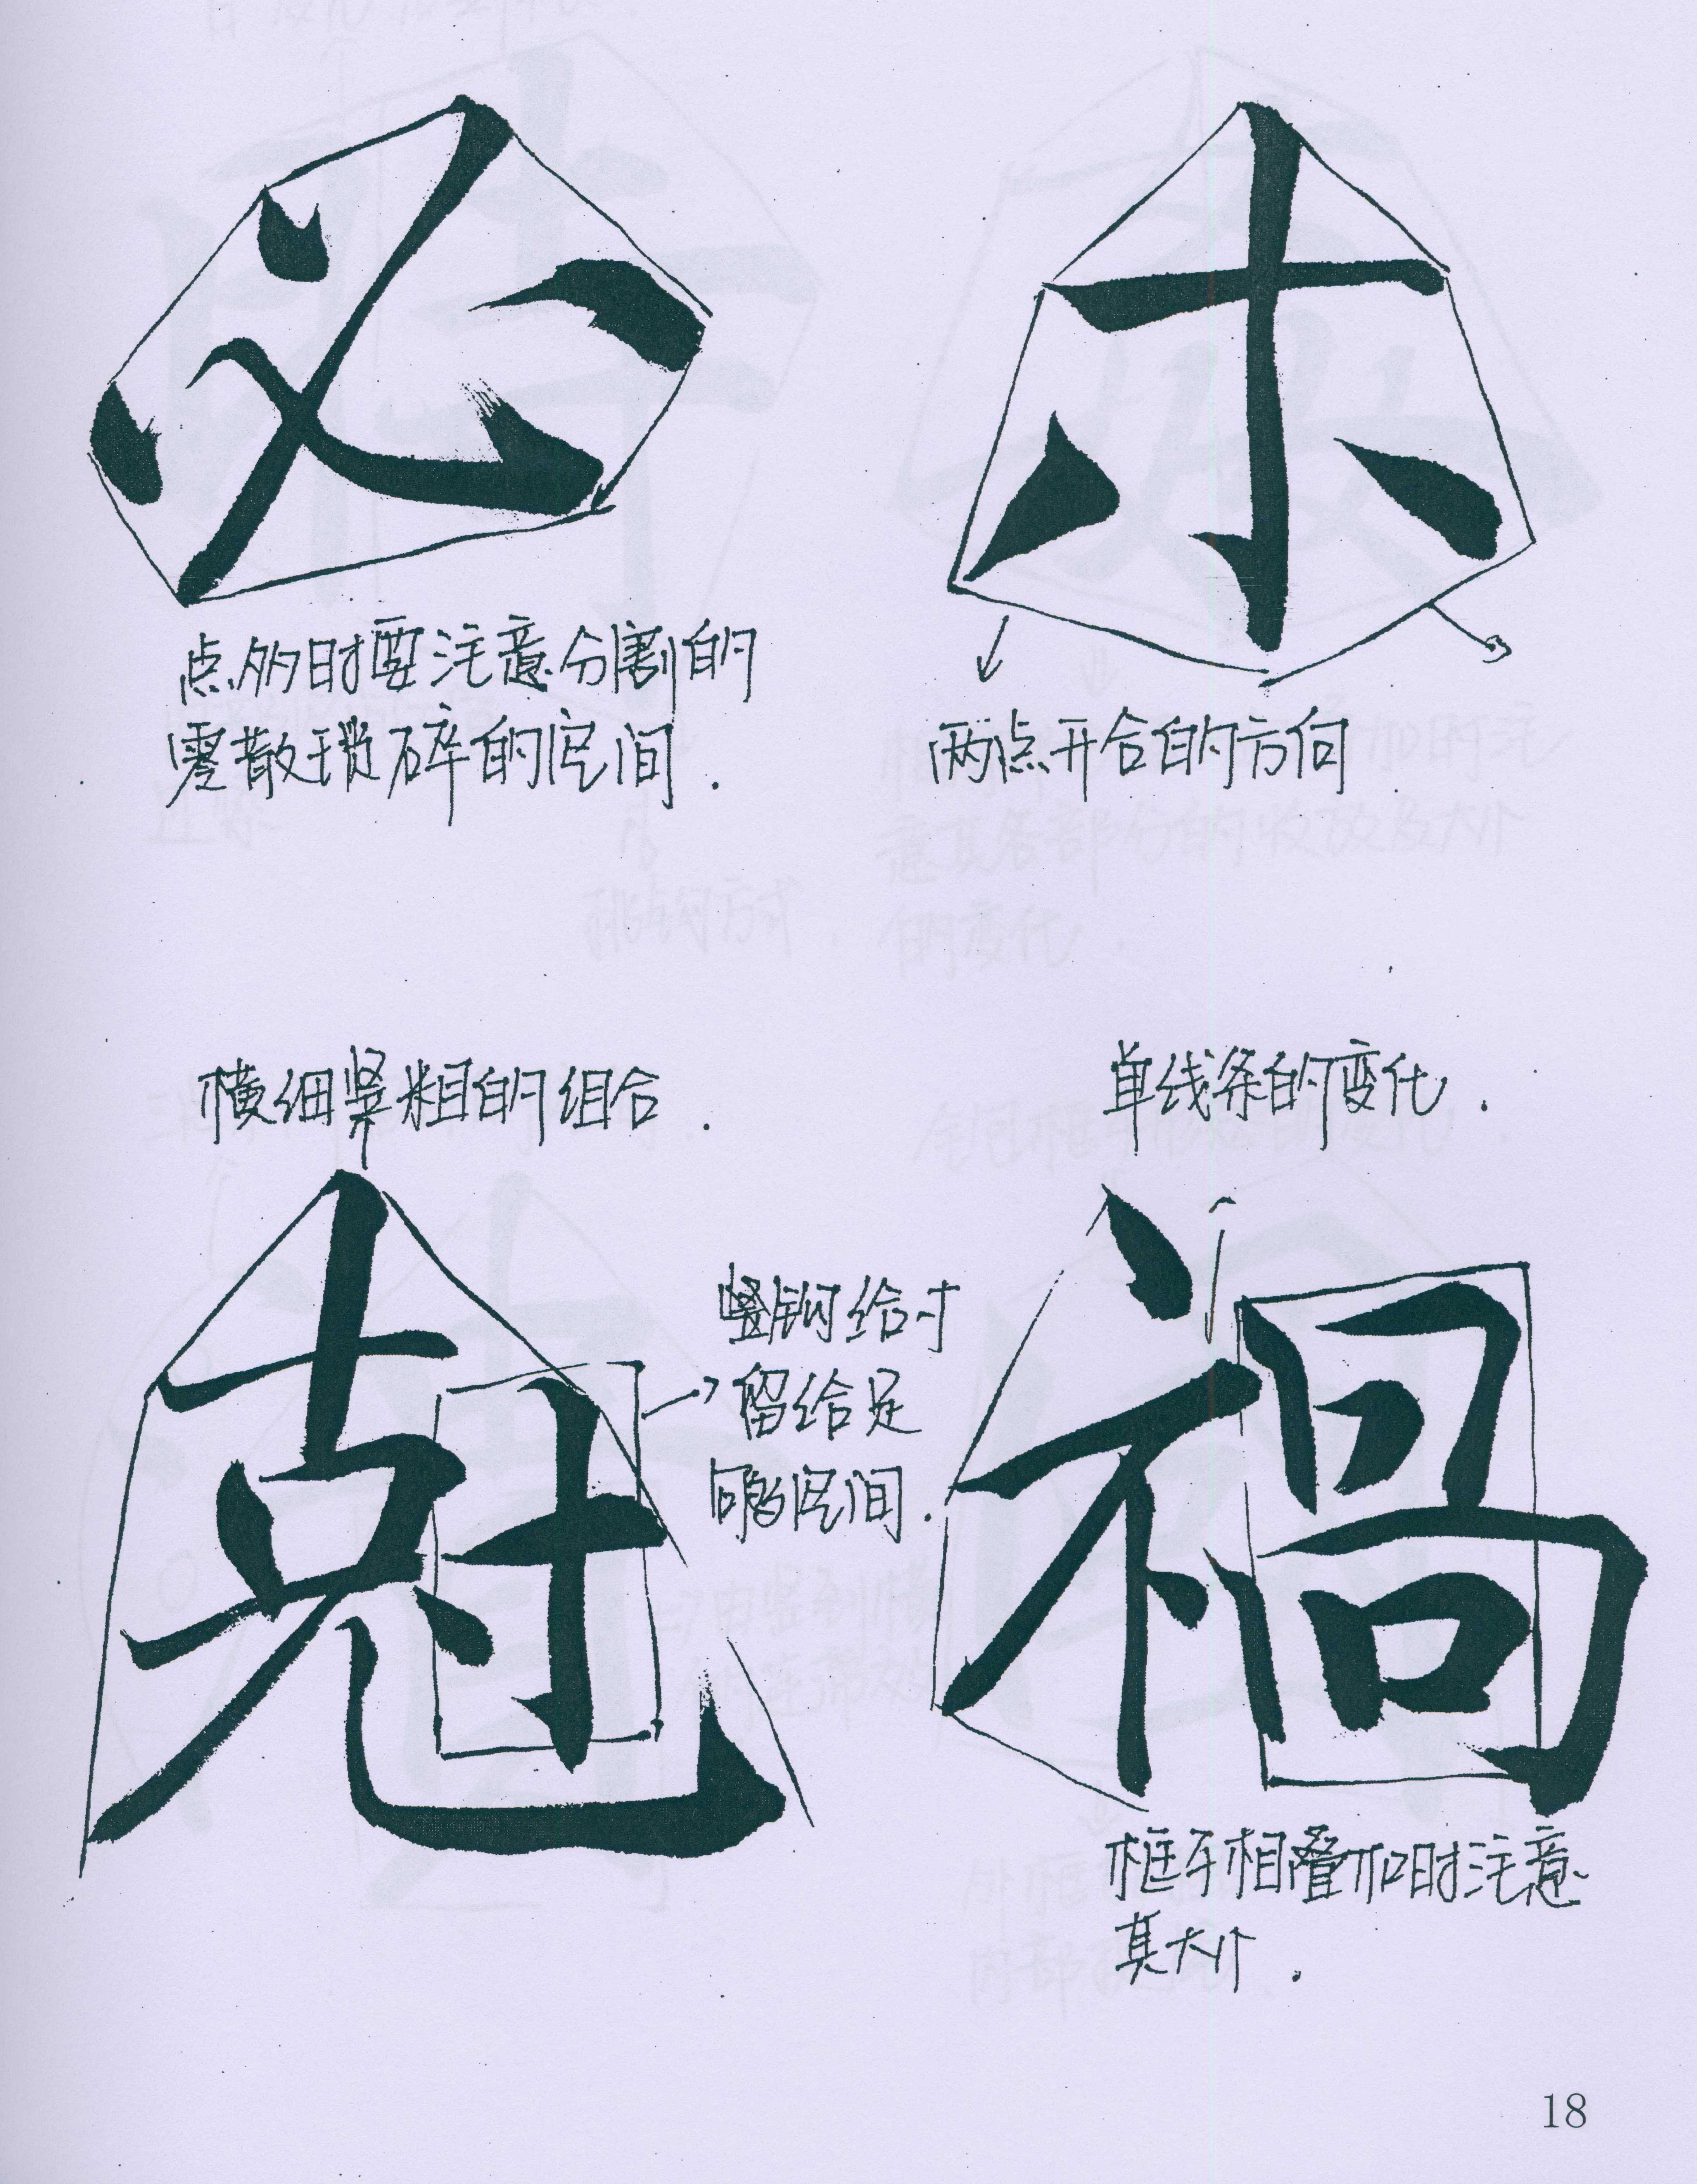 必
木
点多时要注意分割的
零散琐碎的空间.
两点开合的方向
横细竖粗的组合.
单线条的变化.
尅
禍
竖钩给寸
留给足
够空间.
框子相叠加时注意
其大小.
18